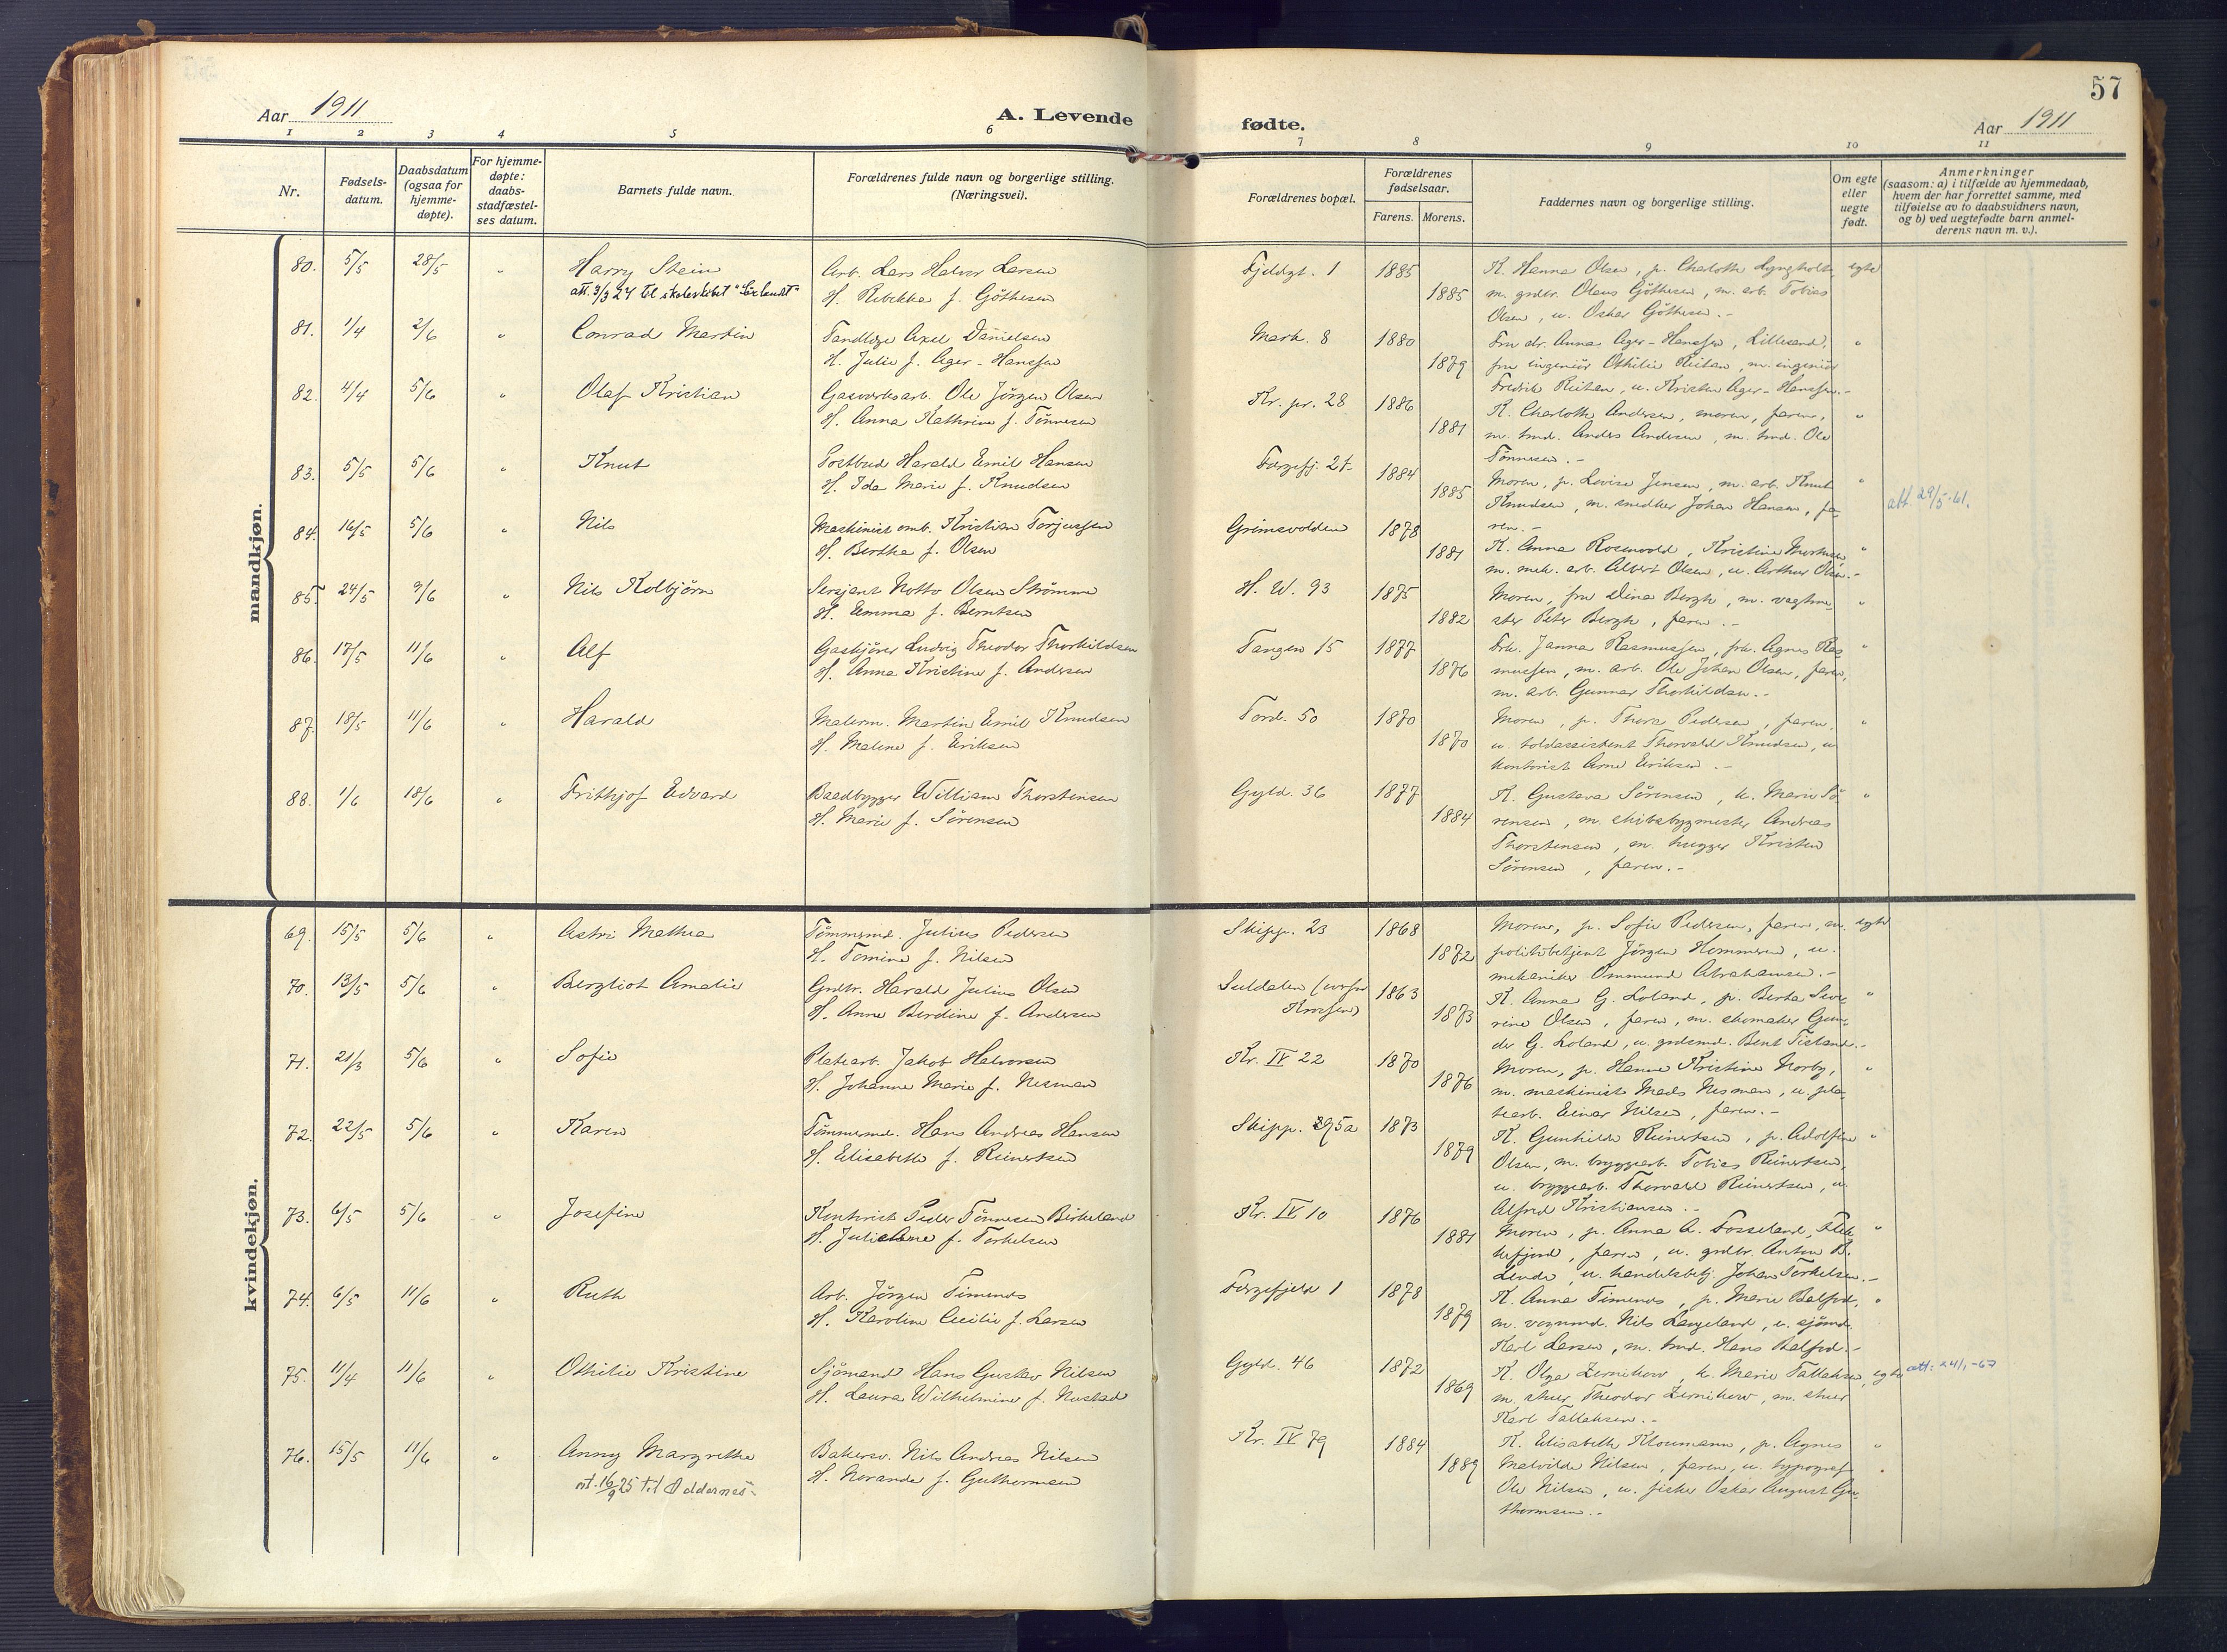 57
Aar 1911
A. Levende
fødte.
Aar 1911
1 2 3 4 5 6 7 8 9 10 11
Nr.
Fødsels-
datum.
Daabsdatum
(ogsaa for
hjemme-
døpte).
For hjemme-
døpte:
daabs-
stadfæstel-
ses datum.
Barnets fulde navn.
Forældrenes fulde navn og borgerlige stilling.
(Næringsvei).
Forældrenes bopæl.
Forældrenes
fødselsaar.
Farens. Morens.
Faddernes navn og borgerlige stilling.
Om egte
eller
uegte
født.
Anmerkninger
(saasom: a) i tilfælde av hjemmedaab,
hvem der har forrettet samme, med
tilføielse av to daabsvidners navn,
og b) ved uegtefødte barn anmel-
derens navn m. v.).
mandkjøn.
80. 5/5 28/5 " Harry Stein Arb. Lars Halvor Larsen Fjeldgt. 1 1885 K. Hanna Olsen, p. Charlotte Lyngholt, egte
att. 3/3 24 til skoleskibet "Sørlandet" H. Rebekka f. Göthesen 1885 m. grdbr. Olaus Göthesen, m. arb. Tobias
Olsen, u. Oskar Göthesen.-
81. 1/4 2/6 " Conrad Martin Tandlæge Axel Danielsen Mark. 8 1880 Fru dr. Anna Ager-Hanssen, Lillesand, "
H. Julie f. Ager-Hanssen 1879 fru ingeniør Othilie Reitan, m. ingeniør
Fredrik Reitan, u. Kristen Ager-Hanssen.-
82. 4/4 5/6 " Olaf Kristian Gasverksarb. Ole Jörgen Olsen Kr. pr. 28 1886 K. Charlotte Andersen, moren, faren, "
H. Anna Kathrine f. Tönnesen 1881 m. tmd. Anders Andersen, m. tmd. Ole
Tönnesen.-
83. 5/5 5/6 " Knut Postbud Harald Emil Hansen 1884 Moren, p. Lovise Jensen, m. arb. Knut "
H. Ida Marie f. Knudsen 1885 Knudsen, m. snedker Johan Hansen, fa- att. 29/5-61.
ren.-
84. 16/5 5/6 " Nils Maskinist omb. Kristian Torjussen Grimsvolden 1878 K. Anna Rosenvold, Kristine Mortensen "
H. Berthe f. Olsen 1881 m. mek. arb. Albert Olsen, u. Arthur Olsen.-
85. 24/5 9/6 " Nils Kolbjörn Sersjant Notto Olsen Strömme H. W. 93 1875 Moren, fru Dina Bergh, m. vagtme- "
H. Emma f. Berntsen 1882 ster Peter Bergh, faren.-
86. 17/5 11/6 " Alf Ludvig Theodor Thorkildsen Tangen 15 1877 Frk. Janna Rasmussen, frk. Agnes Ras- "
H. Anna Kristine f. Andersen 1876 mussen, m. arb. Ole Johan Olsen, faren,
m. arb. Gunnar Thorkildsen.-
87. 18/5 11/6 " Harald Malerm. Martin Emil Knudsen Tord. 50 1870 Moren, p. Thora Pedersen, faren, "
H. Malene f. Eriksen 1870 u. toldassistent Thorvald Knudsen, u.
kontorist Arne Eriksen.-
88. 1/6 18/6 " Frithjof Edvard Baadbygger William Thorstensen Gyld. 36 1877 K. Gustava Sörensen, k. Marie Sö- "
H. Marie f. Sörensen 1884 rensen, m. skibsbygmester Andreas
Thorstensen, m. hugger Kristen
Sörensen, faren.-
kvindekjøn.
69. 15/5 5/6 " Astri Mathea Tömmermd. Julius Pedersen Skipp. 23 1868 Moren, p. Sofie Pedersen, faren, m. egte
H. Tomine f. Nilsen 1872 politibetjent Jörgen Hommeren, u.
mekaniker Ommund Abrahamsen.-
70. 13/5 5/6 " Bergliot Amalie Grdbr. Harald Julius Olsen Suldalen (ovenfor 1863 K. Anna G. Loland, p. Berta Seve- "
H. Anne Berdine f. Andersen Krossen) 1873 rine Olsen, faren, m. skomaker Gun-
der G. Loland, u. grdsmd. Bent Tveland.-
71. 21/3 5/6 " Sofie Platearb. Jakob Halvorsen Kr. IV 22 1870 Moren, p. Hanne Kristine Norby, "
H. Johanne Marie f. Nesman 1876 m. maskinist Mads Nesman, u. pla-
tearb. Einar Nilsen, faren.-
72. 22/5 5/6 " Karen Tömmermd. Hans Andreas Hansen Skipp. 95a 1873 K. Gunhilde Reinertsen, p. Adolfine "
H. Elisabeth f. Reinertsen 1879 Olsen, m. bryggearb. Tobias Reinertsen,
u. bryggearb. Thorvald Reinertsen, u.
Alfred Kristiansen.-
73. 6/5 5/6 " Josefine Kontorist Peder Tönnesen Birkeland Kr. IV 10 1876 Moren, p. Anna A. Fosseland, Flek- "
H. Juliane f. Torkelsen 1881 kefjord, faren, u. grdbr. Anton B.
Lende, u. handelsbetj. Johan Torkelsen.-
74. 6/5 11/6 " Ruth Arb. Jörgen Timenes Færgefjeld 1 1878 K. Anna Timenes, p. Marie Balfod, "
H. Karoline Cecilie f. Larsen 1879 m. vognmd. Nils Langeland, u. sjömd.
Karl Larsen, m. tmd. Hans Balfod.-
75. 11/4 11/6 " Othilie Kristine Sjömand Hans Gustav Nilsen Gyld. 46 1872 K. Olga Zernikow, k. Marie Tallaksen, egte att. 24/1-67
H. Laura Wilhelmine f. Nustad 1869 m. stuer Theodor Zernikow, m. stuer
Karl Tallaksen.-
76. 15/5 11/6 " Anny Margrethe Bakersv. Nils Andreas Nilsen Kr. IV 79 1884 K. Elisabeth Kloumann, p. Agnes "
att. 16/9 25 til Oddernes H. Norande f. Guthormsen 1889 Malvilde Nilsen, faren, u. typograf
Ole Nilsen, u. fisker Oskar August Gu-
thormsen.-